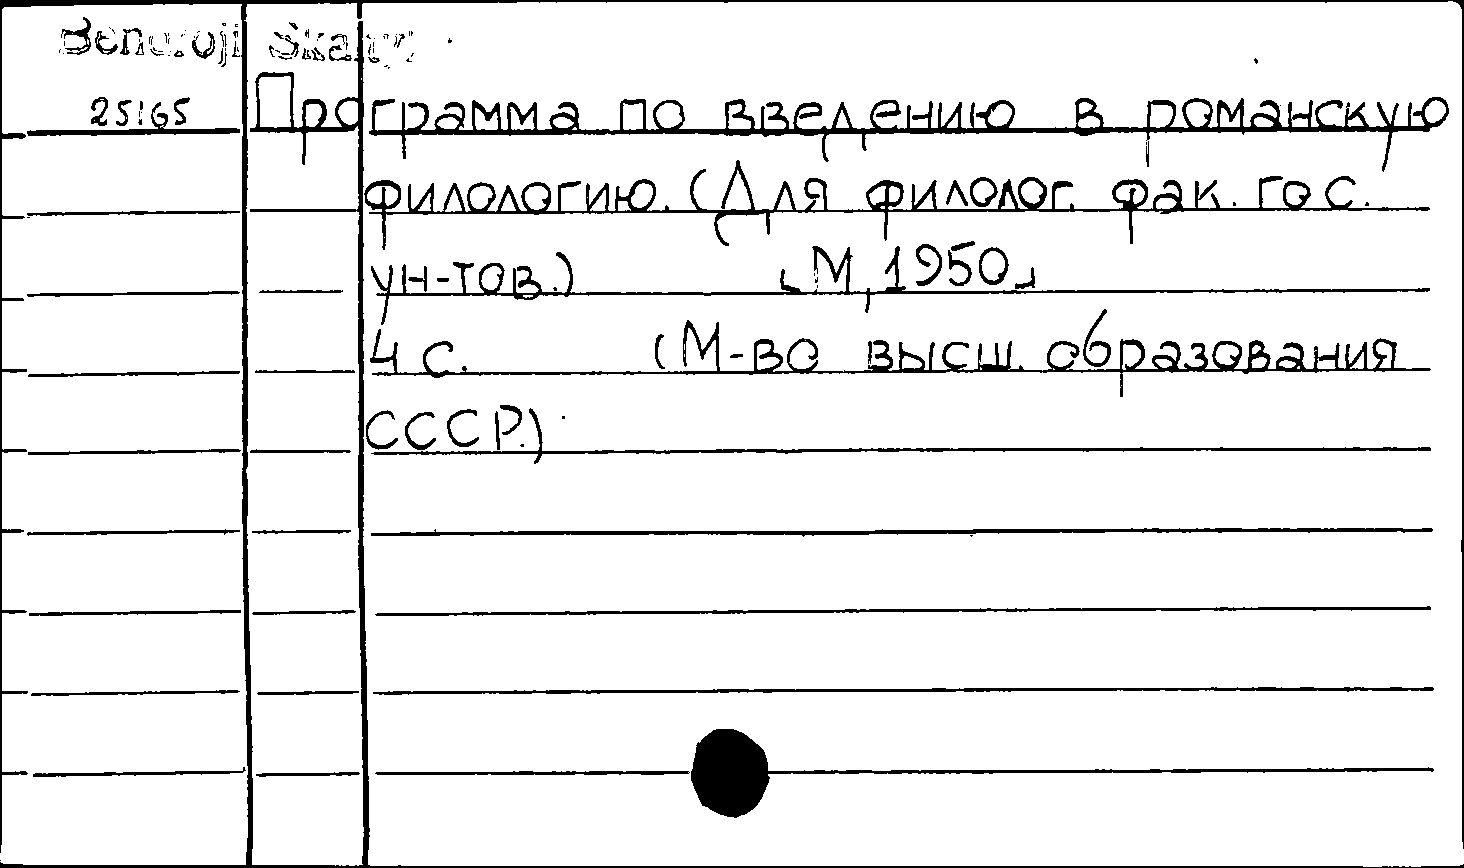 Bendroji
25165 Программа по введению в романскую
филологию. (Для филолог. фак. гос.
ун-тов.) [М, 1950]
4 с. (М-во высш. образования
СССР.)